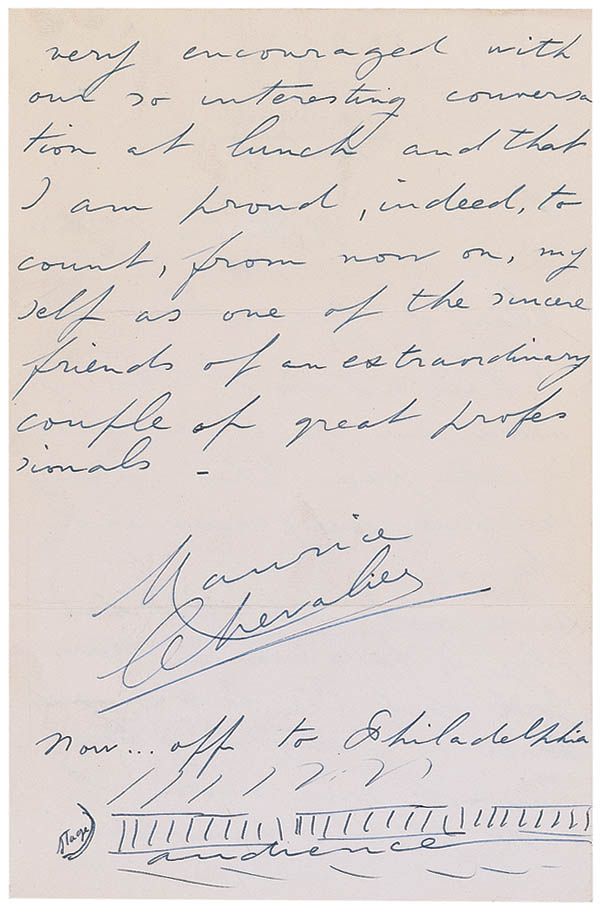 very encouraged with
our so interesting conversa
tion at lunch and that
I am proud, indeed, to
count, from now on, my
self as one of the sincere
friends of an extraordinary
couple of great profes
sionals -
Maurice
Chevalier
Now... off to Philadelphia
stage
audience